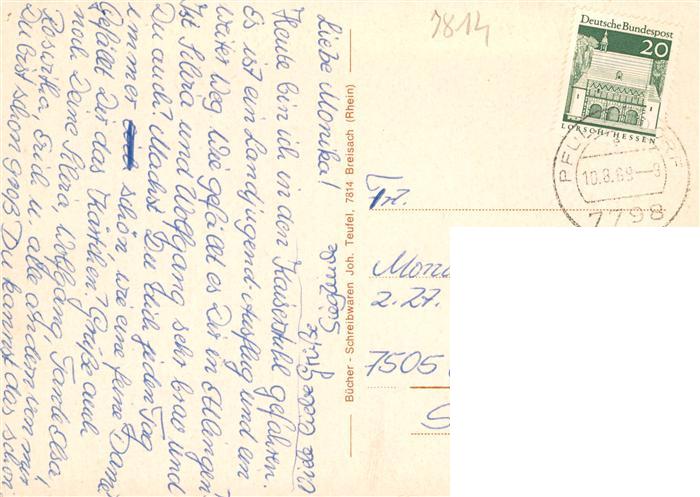 7814
Deutsche Bundespost
20
LORSCH/HESSEN
10.8.69-8
7798
Liebe Monika!
Heute bin ich in den Kaiserstuhl gefahren.
Es ist ein Landjugend-Ausflug und ein
weiter Weg. Wie gefällt es Dir in Ettlingen?
Ist Silvia und Wolfgang sehr brav und
Du auch? Machst Du Dich jeden Tag
immer schön, wie eine feine Dame?
Gefällt Dir das Kärtchen? Grüße auch
noch Deine Silvia, Wolfgang, Tante Elsa,
Roswitha, Erich u. alle andern von mir.
Du bist schon groß, Du kannst das schon.
Viele liebe Grüße
Bücher - Schreibwaren Joh. Teufel, 7814 Breisach (Rhein)
Frl.
z. Zt.
7505